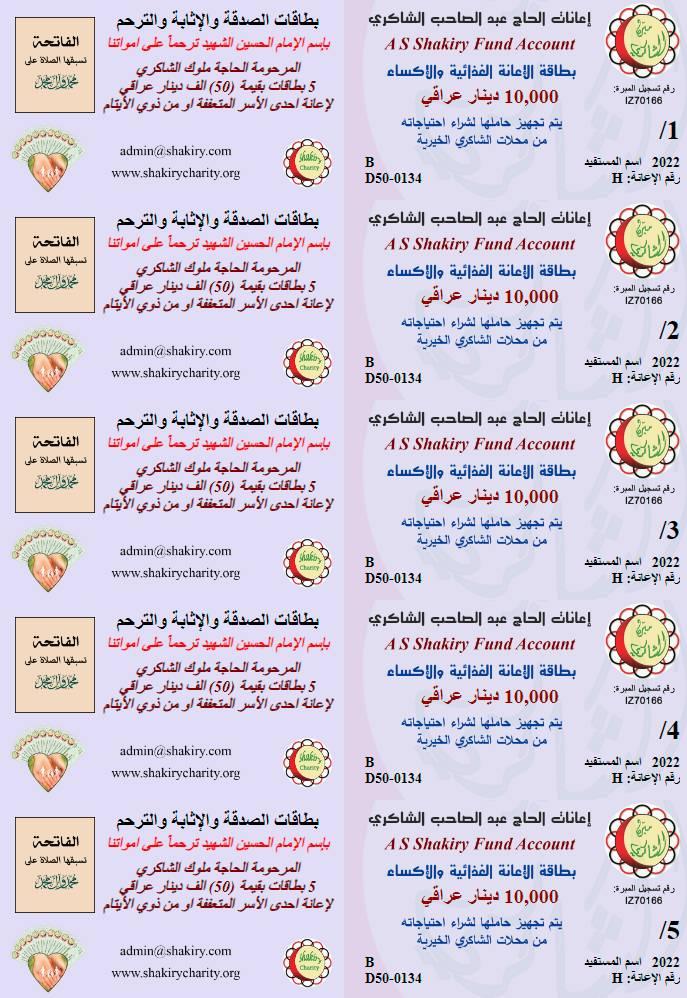 إعانات الحاج عبد الصاحب الشاكري
A S Shakiry Fund Account
بطاقة الأعانة الغذائية والأكساء
10,000 دينار عراقي
يتم تجهيز حاملها لشراء احتياجاته
من محلات الشاكري الخيرية
مبرة الشاكري
رقم تسجيل المبرة:
IZ70166
1/
2022 اسم المستفيد B
رقم الإعانة: H D50-0134
بطاقات الصدقة والإثابة والترحم
بإسم الإمام الحسين الشهيد ترحماً على امواتنا
المرحومة الحاجة ملوك الشاكري
5 بطاقات بقيمة (50) الف دينار عراقي
لإعانة احدى الأسر المتعففة او من ذوي الأيتام
الفاتحة
تسبقها الصلاة على
محمد وآل محمد
admin@shakiry.com
www.shakirycharity.org
Shakiry
Charity
إعانات الحاج عبد الصاحب الشاكري
A S Shakiry Fund Account
بطاقة الأعانة الغذائية والأكساء
10,000 دينار عراقي
يتم تجهيز حاملها لشراء احتياجاته
من محلات الشاكري الخيرية
مبرة الشاكري
رقم تسجيل المبرة:
IZ70166
2/
2022 اسم المستفيد B
رقم الإعانة: H D50-0134
بطاقات الصدقة والإثابة والترحم
بإسم الإمام الحسين الشهيد ترحماً على امواتنا
المرحومة الحاجة ملوك الشاكري
5 بطاقات بقيمة (50) الف دينار عراقي
لإعانة احدى الأسر المتعففة او من ذوي الأيتام
الفاتحة
تسبقها الصلاة على
محمد وآل محمد
admin@shakiry.com
www.shakirycharity.org
Shakiry
Charity
إعانات الحاج عبد الصاحب الشاكري
A S Shakiry Fund Account
بطاقة الأعانة الغذائية والأكساء
10,000 دينار عراقي
يتم تجهيز حاملها لشراء احتياجاته
من محلات الشاكري الخيرية
مبرة الشاكري
رقم تسجيل المبرة:
IZ70166
3/
2022 اسم المستفيد B
رقم الإعانة: H D50-0134
بطاقات الصدقة والإثابة والترحم
بإسم الإمام الحسين الشهيد ترحماً على امواتنا
المرحومة الحاجة ملوك الشاكري
5 بطاقات بقيمة (50) الف دينار عراقي
لإعانة احدى الأسر المتعففة او من ذوي الأيتام
الفاتحة
تسبقها الصلاة على
محمد وآل محمد
admin@shakiry.com
www.shakirycharity.org
Shakiry
Charity
إعانات الحاج عبد الصاحب الشاكري
A S Shakiry Fund Account
بطاقة الأعانة الغذائية والأكساء
10,000 دينار عراقي
يتم تجهيز حاملها لشراء احتياجاته
من محلات الشاكري الخيرية
مبرة الشاكري
رقم تسجيل المبرة:
IZ70166
4/
2022 اسم المستفيد B
رقم الإعانة: H D50-0134
بطاقات الصدقة والإثابة والترحم
بإسم الإمام الحسين الشهيد ترحماً على امواتنا
المرحومة الحاجة ملوك الشاكري
5 بطاقات بقيمة (50) الف دينار عراقي
لإعانة احدى الأسر المتعففة او من ذوي الأيتام
الفاتحة
تسبقها الصلاة على
محمد وآل محمد
admin@shakiry.com
www.shakirycharity.org
Shakiry
Charity
إعانات الحاج عبد الصاحب الشاكري
A S Shakiry Fund Account
بطاقة الأعانة الغذائية والأكساء
10,000 دينار عراقي
يتم تجهيز حاملها لشراء احتياجاته
من محلات الشاكري الخيرية
مبرة الشاكري
رقم تسجيل المبرة:
IZ70166
5/
2022 اسم المستفيد B
رقم الإعانة: H D50-0134
بطاقات الصدقة والإثابة والترحم
بإسم الإمام الحسين الشهيد ترحماً على امواتنا
المرحومة الحاجة ملوك الشاكري
5 بطاقات بقيمة (50) الف دينار عراقي
لإعانة احدى الأسر المتعففة او من ذوي الأيتام
الفاتحة
تسبقها الصلاة على
محمد وآل محمد
admin@shakiry.com
www.shakirycharity.org
Shakiry
Charity